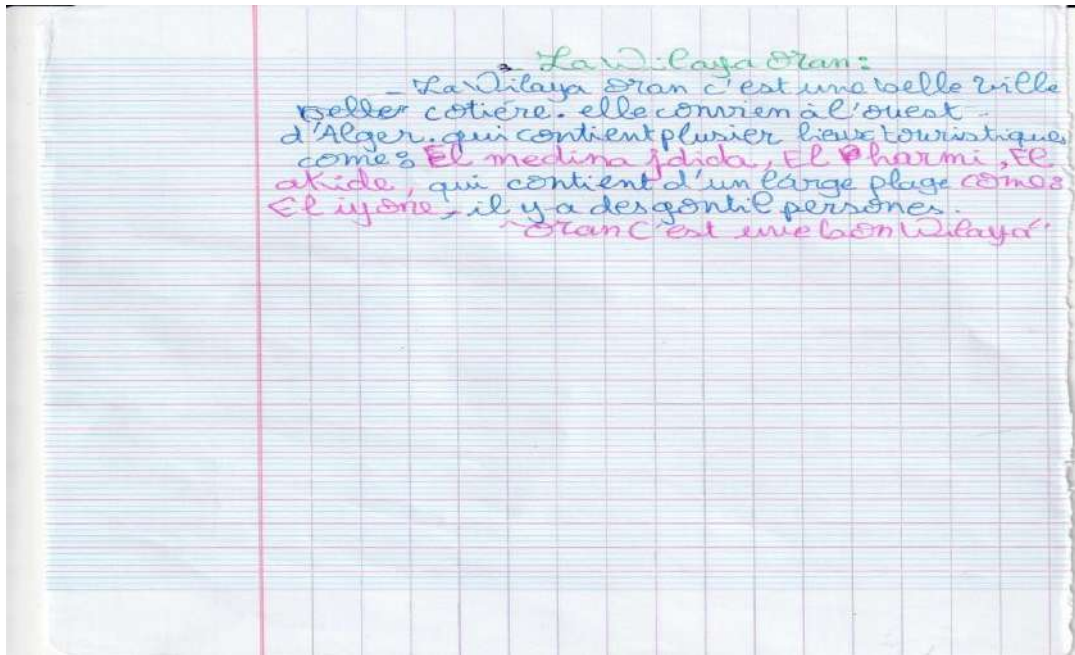 - La Wilaya Oran:
- La Wilaya Oran c'est une belle ville
belle cotiére. elle convien à l'ouest
d'Alger. qui contient plusier lieux touristique
come: El medina jdida, El harmi, El
akide, qui contient d'un large plage come:
El iyone, il y a des gontil persones.
"Oran c'est une bon Wilaya"